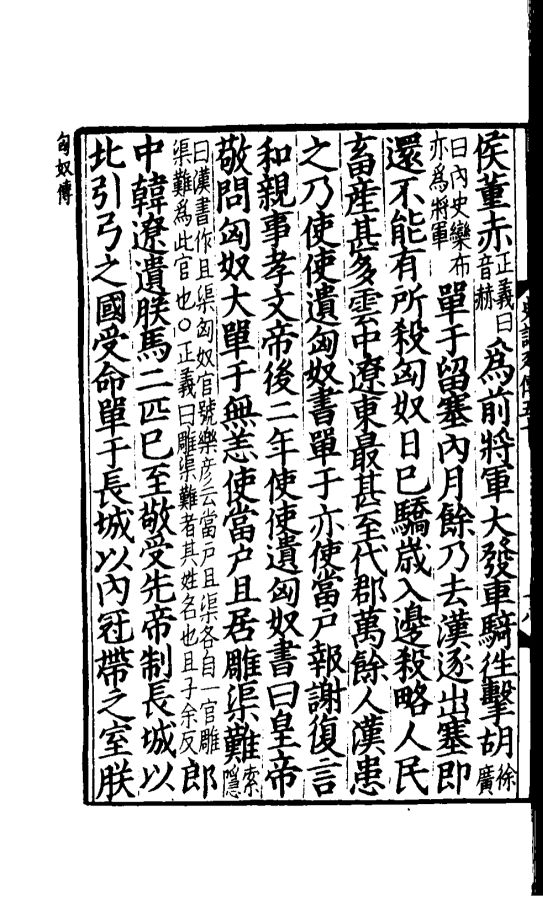 侯董赤正義曰音赫為前將軍大發車騎徃擊胡徐廣
曰內史欒布亦為將軍單于留塞內月餘乃去漢逐出塞即
還不能有所殺匈奴日巳驕歲入邊殺略人民
畜産甚多雲中遼東最甚至代郡萬餘人漢患
之乃使使遺匈奴書單于亦使當户報謝復言
和親事孝文帝後二年使使遺匈奴書曰皇帝
敬問匈奴大單于無恙使當户且居雕渠難索隱
曰漢書作且渠匈奴官號樂彦云當户且渠各自一官雕渠難為此官也○正義曰雕渠難者其姓名也且子余反郎
中韓遼遺朕馬二匹巳至敬受先帝制長城以
北引弓之國受命單于長城以內冠帶之室朕
匈奴傳